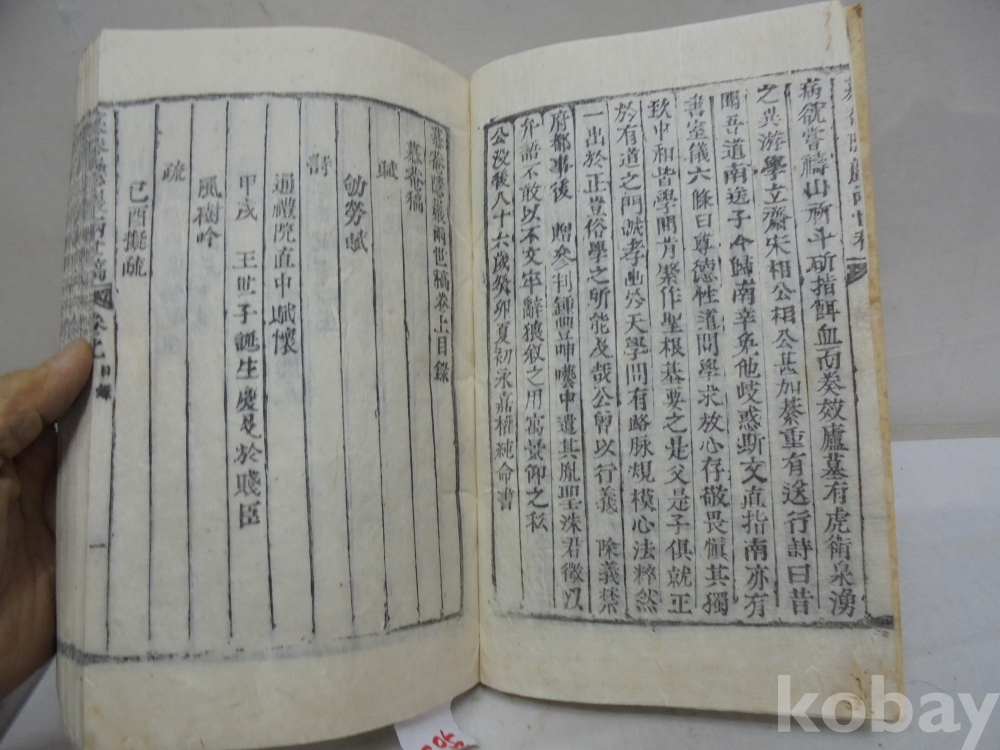 病欲嘗禱山祈斗斫指餌血而奏效廬墓有虎衛泉湧
之異游學立齋宋相公相公甚加綦重有送行詩曰昔
聞吾道南送子今歸南辛免他歧惑斯文直指南亦有
書室儀六條曰尊德性道問學求放心存敬畏愼其獨
致中和皆學問肯綮作聖根基要之是父是子俱就正
於有道之門誠孝出於天學問有路脉規模心法粹然
一出於正豈俗學之所能及哉公曾以行義 除義禁
府都事後 贈參判鍾豊呻囈中遣其胤聖洙君徵以
弁語不敢以不文牢辭猥叙之用寓景仰之私
公沒後八十六歲癸卯夏初永嘉權純命書
慕菴隱巖兩世稿卷上目錄
慕菴稿
賦
劬勞賦
詩
通禮院直中賦懷
甲戌 王世子誕生慶及於賤臣
風樹吟
疏
己酉擬疏
卷上 目錄
一
kobay